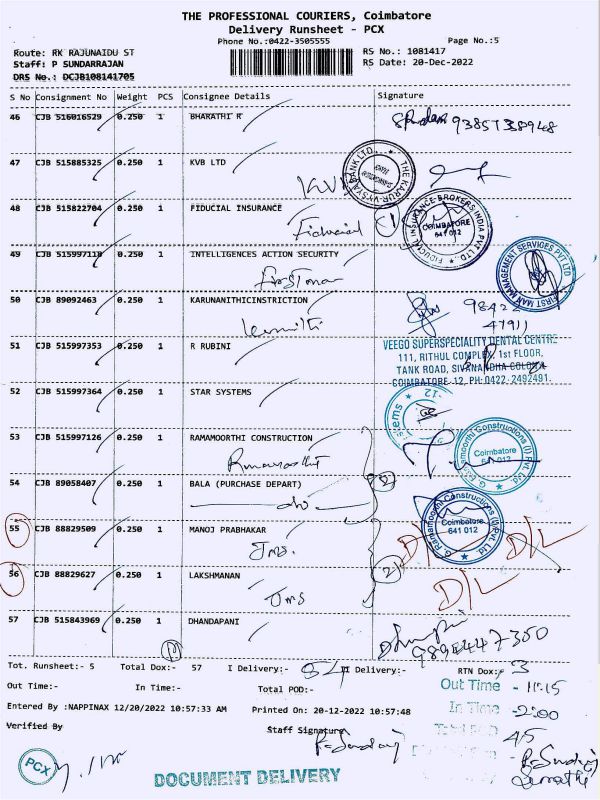 THE PROFESSIONAL COURIERS, Coimbatore
Delivery Runsheet - PCX
Phone No.:0422-3505555
Page No.:5
Route: RK RAJUNAIDU ST
RS No.: 1081417
Staff: P SUNDARRAJAN
RS Date: 20-Dec-2022
DRS No.: DCJB108141705
S No Consignment No Weight PCS Consignee Details Signature
46 CJB 516016529 0.250 1 BHARATHI R
9385738948
47 CJB 515885325 0.250 1 KVB LTD
KVB
THE KARUR VYSYA BANK LTD.
48 CJB 515822704 0.250 1 FIDUCIAL INSURANCE
Fiducial
FIDUCIAL INSURANCE BROKERS INDIA PVT LTD.,
COIMBATORE
641 012
49 CJB 515997118 0.250 1 INTELLIGENCES ACTION SECURITY
First man
FIRST MAN MANAGEMENT SERVICES PVT LTD
50 CJB 89092463 0.250 1 KARUNANITHICINSTRICTION
98422
47911
51 CJB 515997353 0.250 1 R RUBINI
VEEGO SUPERSPECIALITY DENTAL CENTRE
111, RITHUL COMPLEX, 1st FLOOR,
TANK ROAD, SIVANANDHA COLONY
COIMBATORE-12, PH:0422-2492491.
52 CJB 515997364 0.250 1 STAR SYSTEMS
53 CJB 515997126 0.250 1 RAMAMOORTHI CONSTRUCTION
Ramamoorthi
G. Ramamoorthi Constructions (I) Pvt. Ltd
Coimbatore
54 CJB 89058407 0.250 1 BALA (PURCHASE DEPART)
do
2
G. Ramamoorthi Constructions (I) Pvt. Ltd
Coimbatore
641 012
55 CJB 88829509 0.250 1 MANOJ PRABHAKAR
D/L D/L
56 CJB 88829627 0.250 1 LAKSHMANAN
2
D/L
57 CJB 515843969 0.250 1 DHANDAPANI
Tot. Runsheet:- 5 Total Dox:- 57 I Delivery:- 54 II Delivery:- RTN Dox:- 3
Out Time:- In Time:- Total POD:-
Out Time - 11.15
Entered By :NAPPINAX 12/20/2022 10:57:33 AM Printed On: 20-12-2022 10:57:48
In Time - 2:00
Verified By Staff Signature
45
PCX
DOCUMENT DELIVERY